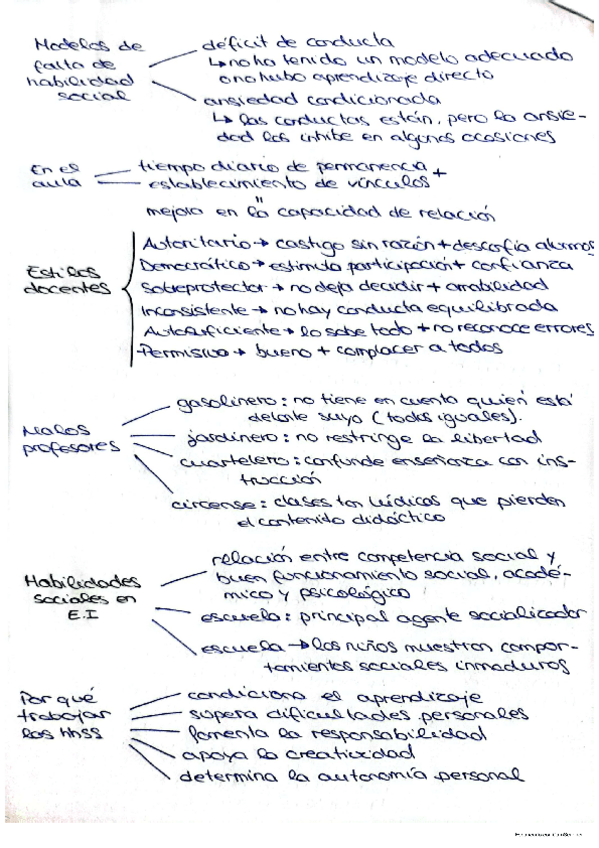 Modelos de
falta de
habilidad
social
déficit de conducta
↳ no ha tenido un modelo adecuado
o no hubo aprendizaje directo
ansiedad condicionada
↳ las conductas están, pero la ansie-
dad las inhibe en algunas ocasiones
En el
aula
tiempo diario de permanencia +
establecimiento de vínculos
"
mejora en la capacidad de relación
Estilos
docentes
Autoritario → castigo sin razón + desconfía alumnos
Democrático → estimula participación + confianza
Sobreprotector → no deja decidir + amabilidad
Inconsistente → no hay conducta equilibrada
Autosuficiente → lo sabe todo + no reconoce errores
Permisivo → bueno + complacer a todos
Malos
profesores
gasolinero: no tiene en cuenta quien está
delante suyo (todos iguales).
jardinero: no restringe la libertad
cuartelero: confunde enseñanza con ins-
trucción
circense: clases tan lúdicas que pierden
el contenido didáctico
Habilidades
sociales en
E.I
relación entre competencia social y
buen funcionamiento social, acadé-
mico y psicológico
escuela: principal agente socializador
escuela → los niños muestran compor-
tamientos sociales inmaduros
Por qué
trabajar
las hhss
condiciona el aprendizaje
supera dificultades personales
fomenta la responsabilidad
apoya la creatividad
determina la autonomía personal